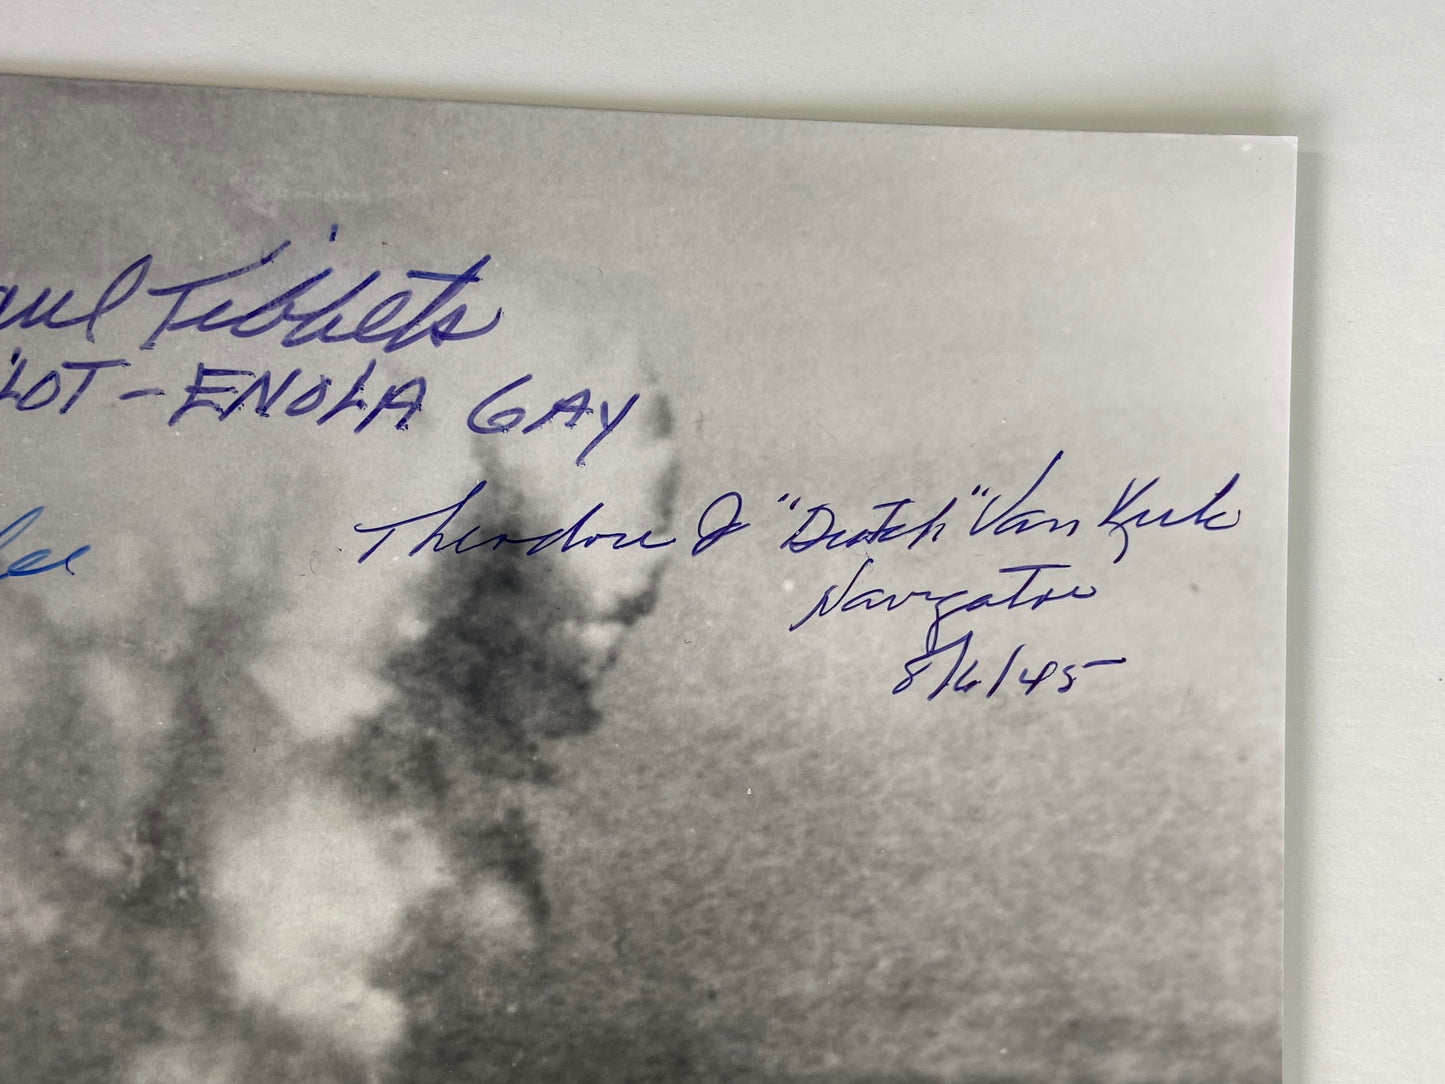 aul Tibbets
ILOT - ENOLA GAY
Theodore J "Dutch" Van Kirk
Navigator
8/6/45